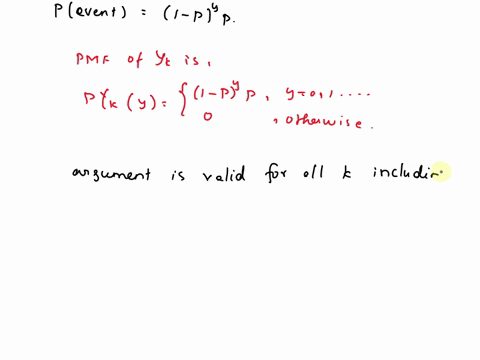 P(event) = (1-P)^y p.
PMF of Y_k is,
P Y_k (y) = { (1-P)^y p , y=0,1 ....
0 , otherwise.
argument is valid for all k includin